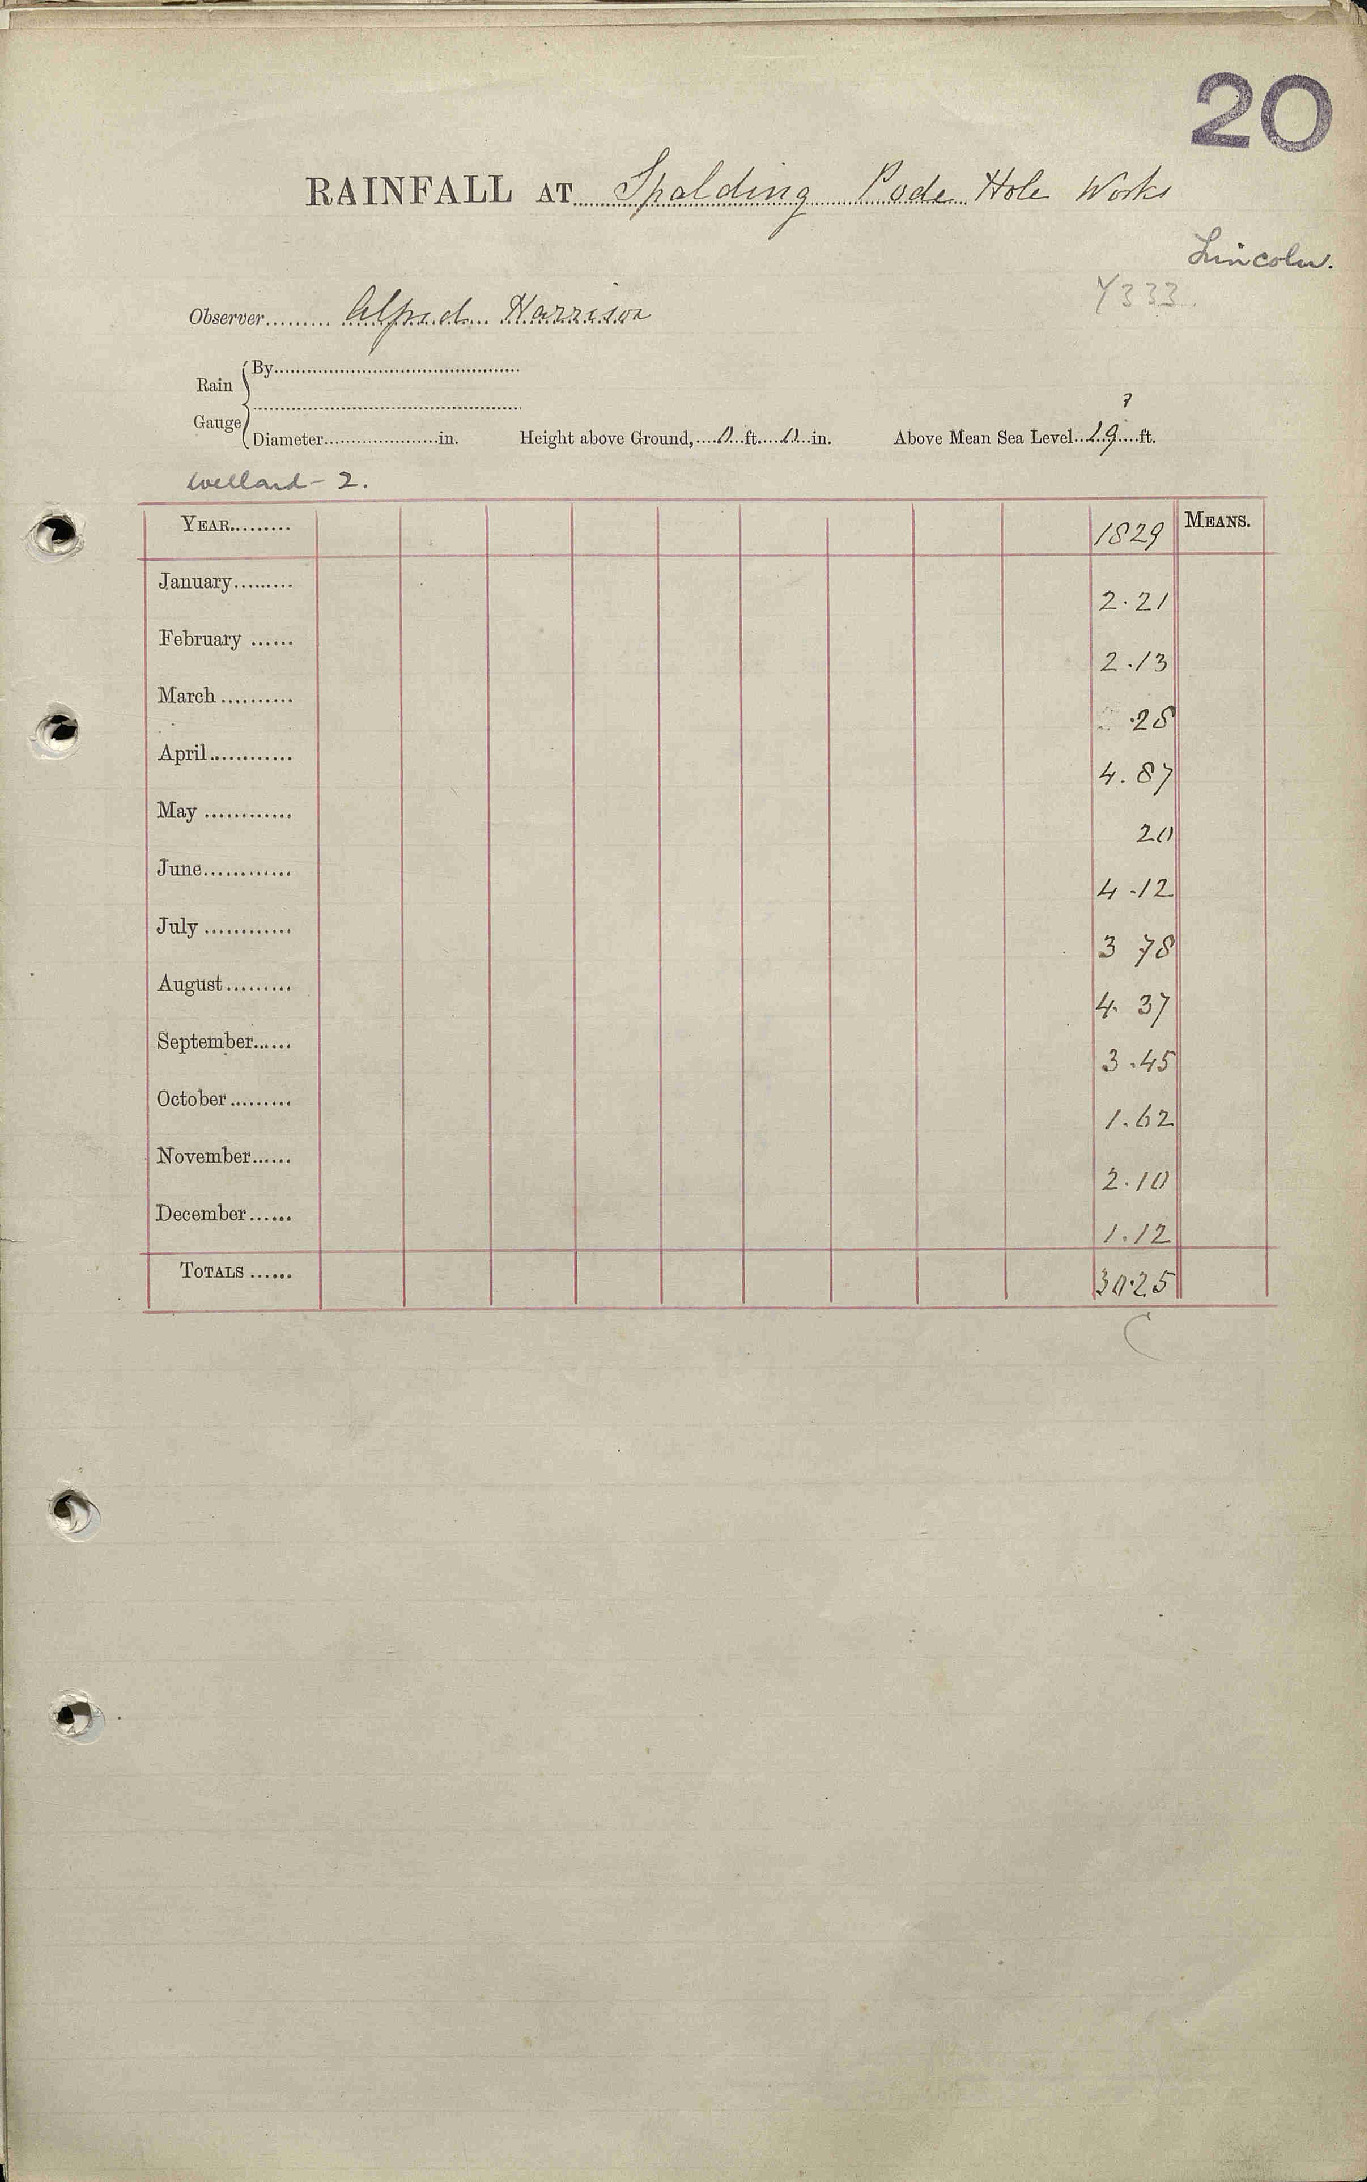 20
RAINFALL AT Spalding Pode Hole Works
Lincoln.
Y333.
Observer......... Alfred Harrison
Rain Gauge { By
Diameter in. Height above Ground, 0 ft. 0 in. Above Mean Sea Level 19 ? ft.
Welland - 2.
YEAR......... 1829 MEANS.
January......... 2.21
February ...... 2.13
March .......... .28
April............ 4.87
May ............ 20
June............ 4.12
July ............ 3 78
August......... 4. 37
September...... 3.45
October......... 1.62
November...... 2.10
December...... 1.12
TOTALS ...... 30.25
C